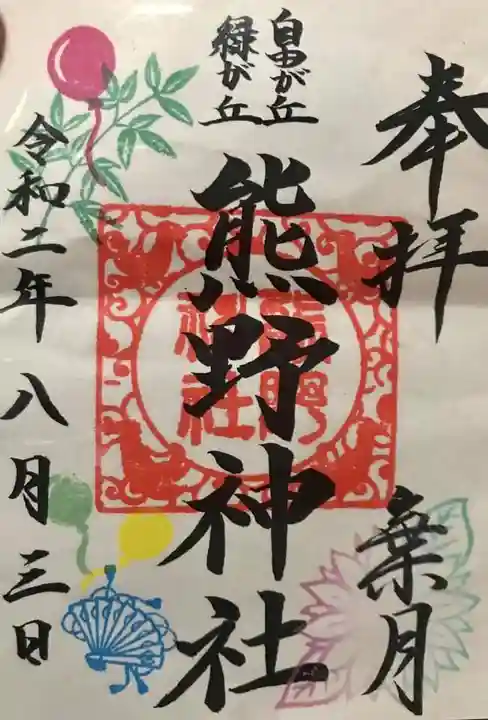 奉拝
葉月
自由が丘
緑が丘
熊野神社
熊野
神社
令和二年八月三日